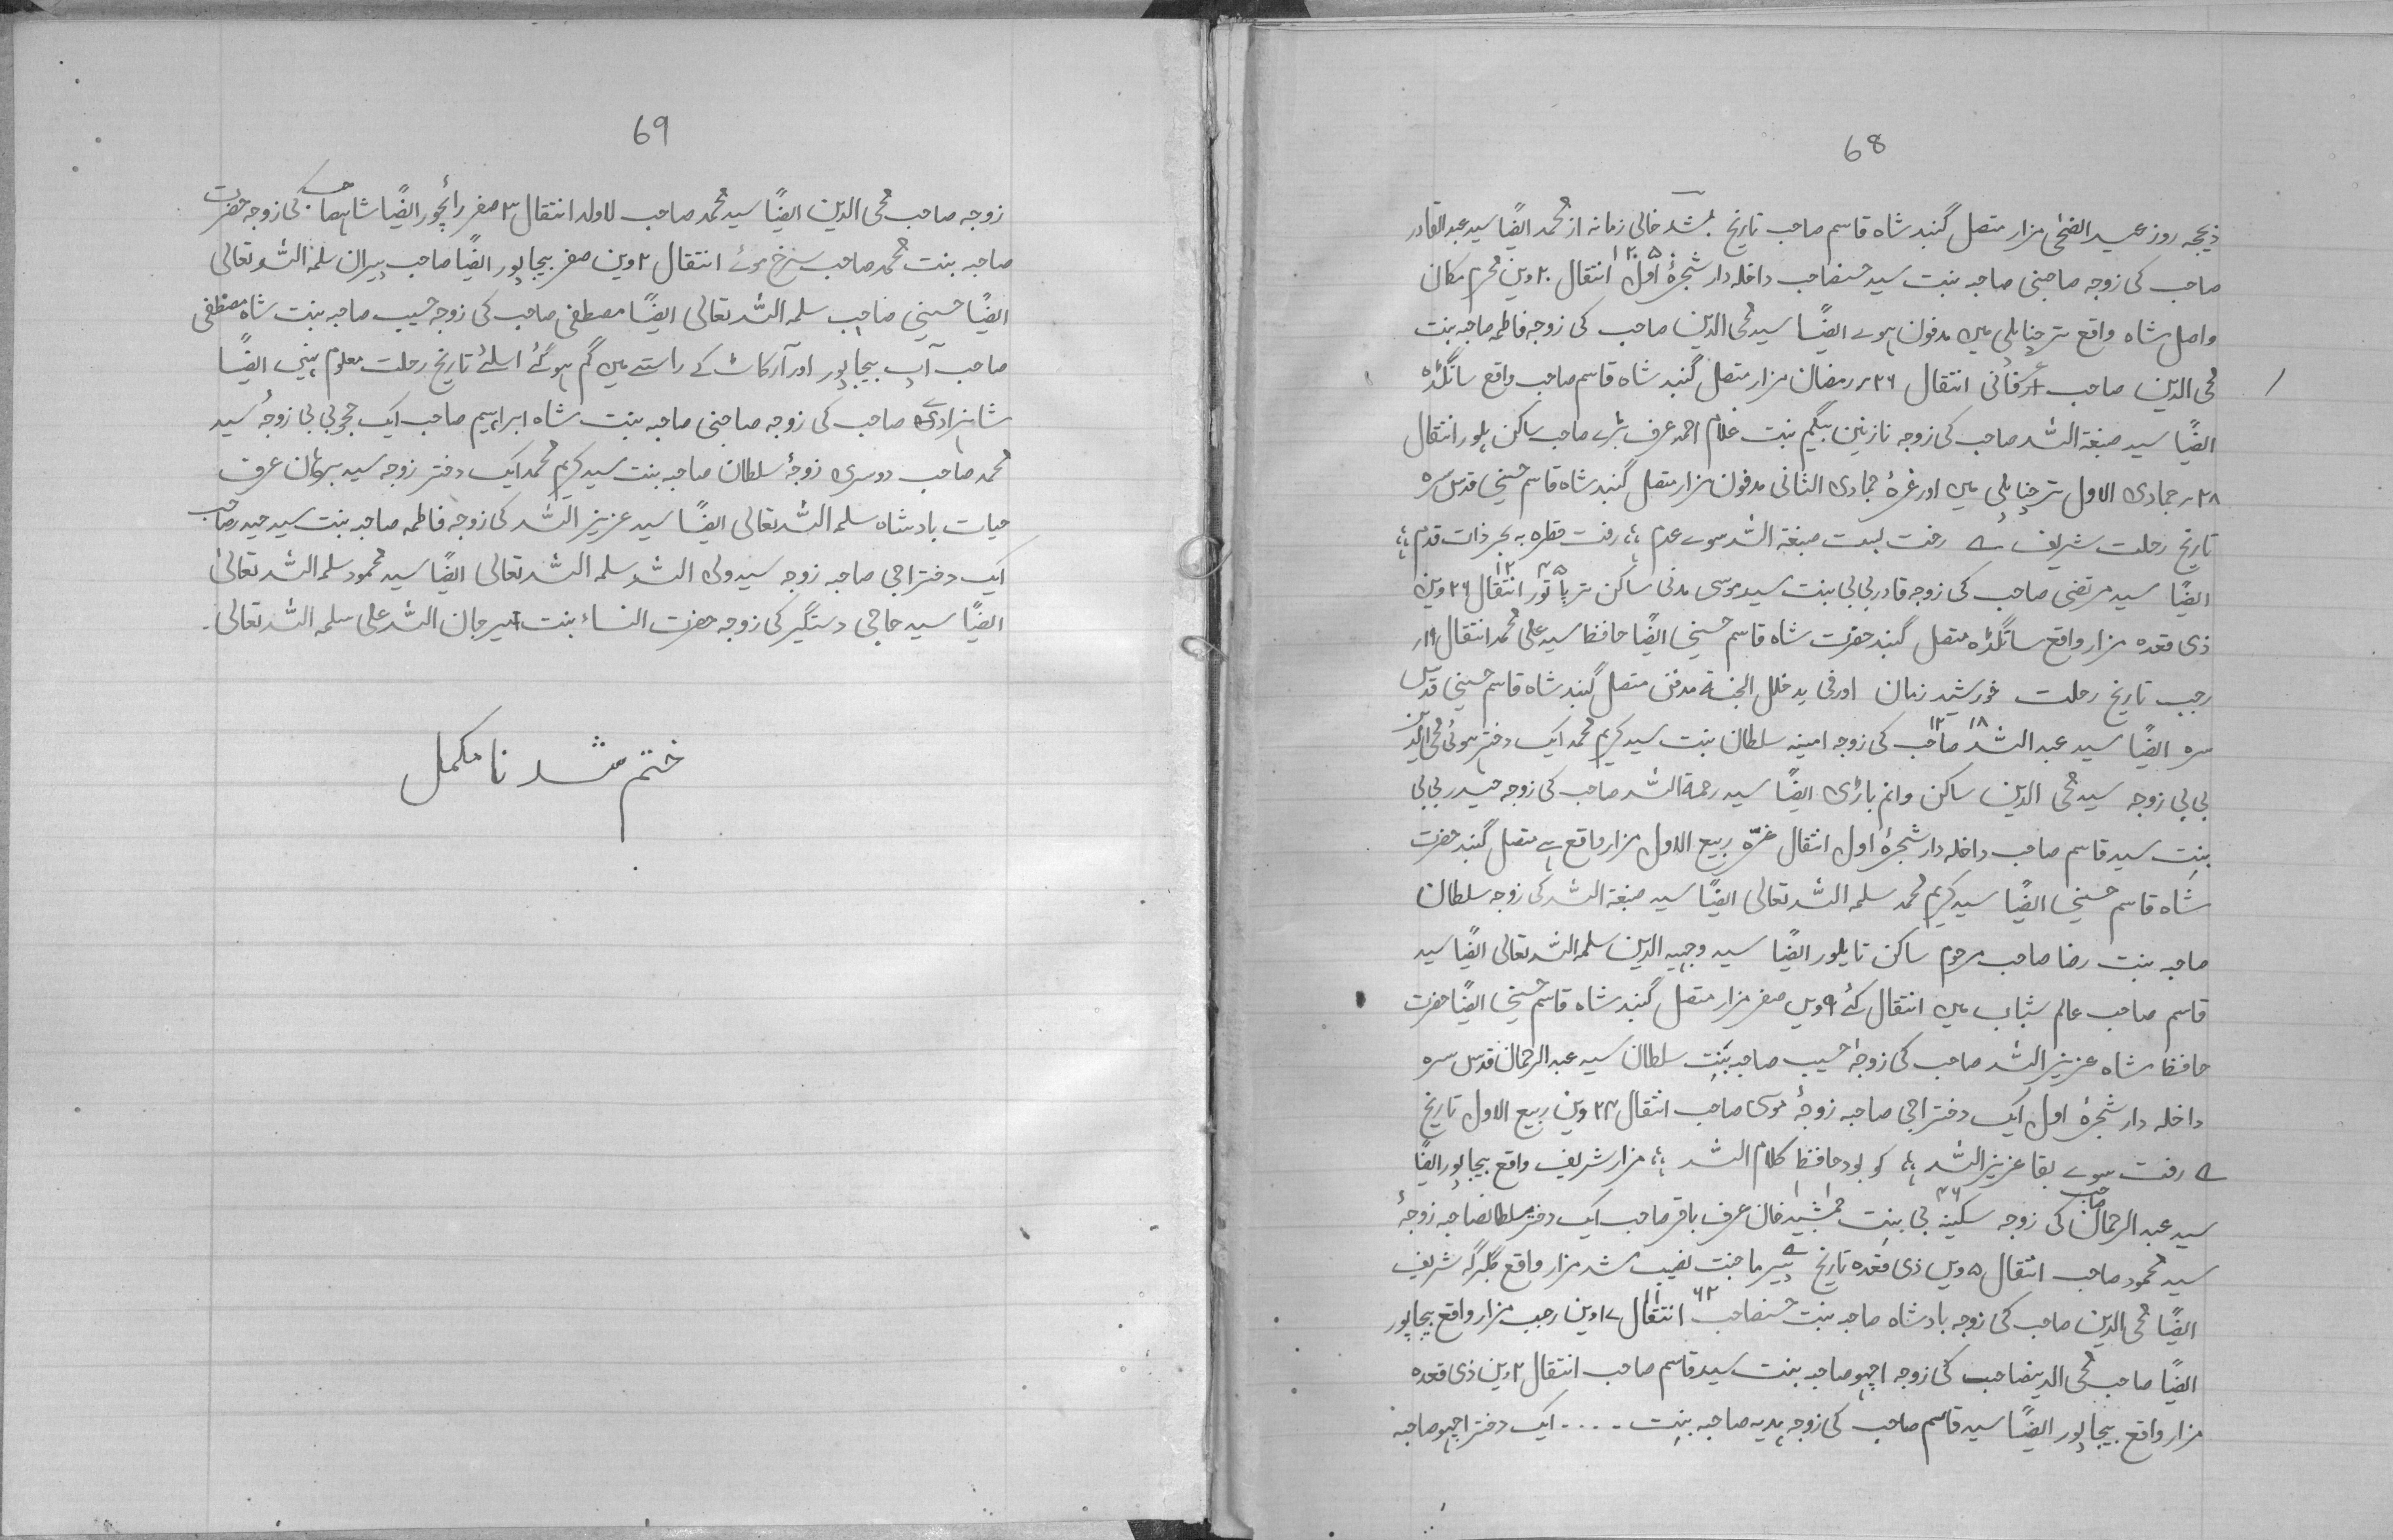 68
ذیحجہ روز عید الضحٰی مزار متصل گنبد شاہ قاسم صاحب تاریخ بشد خالی زمانہ از محمد ایضًا سید عبدالقادر
صاحب کی زوجہ صاحبنی صاحبہ بنت سید حسنصاحب داخلہ دار شجرۂ اول ۱۲۰۵ انتقال ۲۰ وین محرم مکان
واصل شاہ واقع ترچناپلی میں مدفون ہوے ایضًا سید محی الدین صاحب کی زوجہ فاطمہ صاحبہ بنت
محی الدین صاحب انتقال ۲۶؍ رمضان مزار متصل گنبد شاہ قاسم صاحب واقع ساتگڈہ
ایضًا سید صبغۃ اللہ صاحب کی زوجہ نازنین بیگم بنت غلام احمد عرف بڑے صاحب ساکن یلور انتقال
۲۸؍ جمادی الاول ترچناپلی میں اور غرۂ جمادی الثانی مدفون مزار متصل گنبد شاہ قاسم حسینی قدس سرہ
تاریخ رحلت شریف ؎ رخت لبست صبغۃ اللہ سوے عدم ؛؛ رفت قطرہ بہ بحر ذات قدم ؛؛
ایضًا سید مرتضی صاحب کی زوجہ قادر بی بی بنت سید موسی مدنی ساکن ترپاتور ۱۲۴۵ انتقال ۲۶ وین
ذی قعدہ مزار واقع ساتگڈہ متصل گنبد حضرت شاہ قاسم حسینی ایضًا حافظ سید علی محمد انتقال ۱۹؍
رجب تاریخ رحلت خورشید زمان اور فی یدخلل الجنۃ مدفن متصل گنبد شاہ قاسم حسینی قدس
سرہ ایضًا سید عبد اللہ صاحب کی زوجہ امینہ سلطان بنت سید کریم محمد ایک دختر ہوئی محی الدین ۱۲۱۸
بی بی زوجہ سید محی الدین ساکن وانم باڑی ایضًا سید رحمۃ اللہ صاحب کی زوجہ حیدر بی بی
بنت سید قاسم صاحب داخلہ دار شجرۂ اول انتقال غرّہ ربیع الاول مزار واقع ہے متصل گنبد حضرت
شاہ قاسم حسینی ایضًا سید کریم محمد سلمہ اللہ تعالی ایضًا سید صبغۃ اللہ کی زوجہ سلطان
صاحبہ بنت رضا صاحب مرحوم ساکن تایلور ایضًا سید وجیہ الدین سلمہ اللہ تعالی ایضًا سید
قاسم صاحب عالم شباب میں انتقال کئے ۹ ویں صفر مزار متصل گنبد شاہ قاسم حسینی ایضًا حضرت
حافظ شاہ عزیز اللہ صاحب کی زوجہ حسیب صاحبہ بنت سلطان سید عبد الرحمان قدس سرہ
داخلہ دار شجرۂ اول ایک دختر اجی صاحبہ زوجۂ موسی صاحب انتقال ۲۴ وین ربیع الاول تاریخ
؎ رفت سوے بقا عزیز اللہ ؛؛ کو بود حافظ کلام اللہ ؛؛ مزار شریف واقع بیجاپور ایضًا
سید عبد الرحمان صاحب کی زوجہ سکینہ بی بنت جمشید خان عرف باقر صاحب ایک دختر سلطانصاحبہ زوجۂ
سید محمود صاحب انتقال ۵ ویں ذی قعدہ تاریخ ؎ پیر ما جنت نصیب شد مزار واقع گلبرگہ شریف
ایضًا محی الدین صاحب کی زوجہ بادشاہ صاحبہ بنت حسنصاحب ۱۱۶۲ انتقال ۱۷ وین رجب مزار واقع بیجاپور
ایضًا صاحب محی الدینصاحب کی زوجہ اچھو صاحبہ بنت سید قاسم صاحب انتقال ۲ وین ذی قعدہ
مزار واقع بیجاپور ایضًا سید قاسم صاحب کی زوجہ ہدیہ صاحبہ بنت ۔۔۔۔ ایک دختر اچھو صاحبہ
69
زوجہ صاحب محی الدین ایضًا سید محمد صاحب لاولد انتقال ۳ صفر رائچور ایضًا شاہصاحب کی زوجہ حضرت
صاحبہ بنت محمد صاحب سرخ موئے انتقال ۲ وین صفر بیجاپور ایضًا صاحب پیران سلمہ اللہ تعالی
ایضًا حسینی صاحب سلمہ اللہ تعالی ایضًا مصطفی صاحب کی زوجہ حسیب صاحبہ بنت شاہ مصطفی
صاحب آپ بیجاپور اور آرکاٹ کے راستے میں گم ہو گئے اسلئے تاریخ رحلت معلوم نہیں ایضًا
شاہزادے صاحب کی زوجہ صاحبنی صاحبہ بنت شاہ ابراہیم صاحب ایک حجو بی بی زوجہ سید
محمد صاحب دوسری زوجۂ سلطان صاحبہ بنت سید کریم محمد ایک دختر زوجہ سید برہان عرف
حیات بادشاہ سلمہ اللہ تعالی ایضًا سید عزیز اللہ کی زوجہ فاطمہ صاحبہ بنت سید حیدر صاحب
ایک دختر اجی صاحبہ زوجہ سید ولی اللہ سلمہ اللہ تعالی ایضًا سید محمود سلمہ اللہ تعالیٰ
ایضًا سید حاجی دستگیر کی زوجہ حضرت النساء بنت میر جان اللہ علی سلمہ اللہ تعالی۔
ختم شد نامکمل